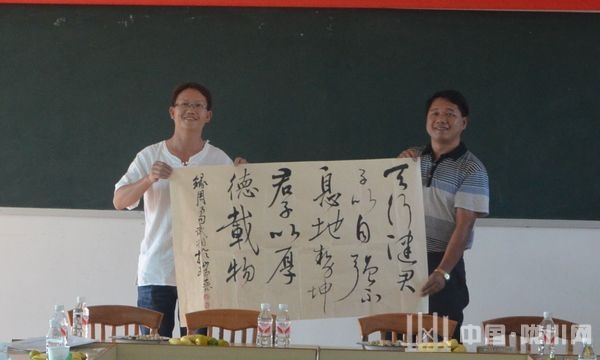 天行健君
子以自强不
息地势坤
君子以厚
德載物
中国·陆川网